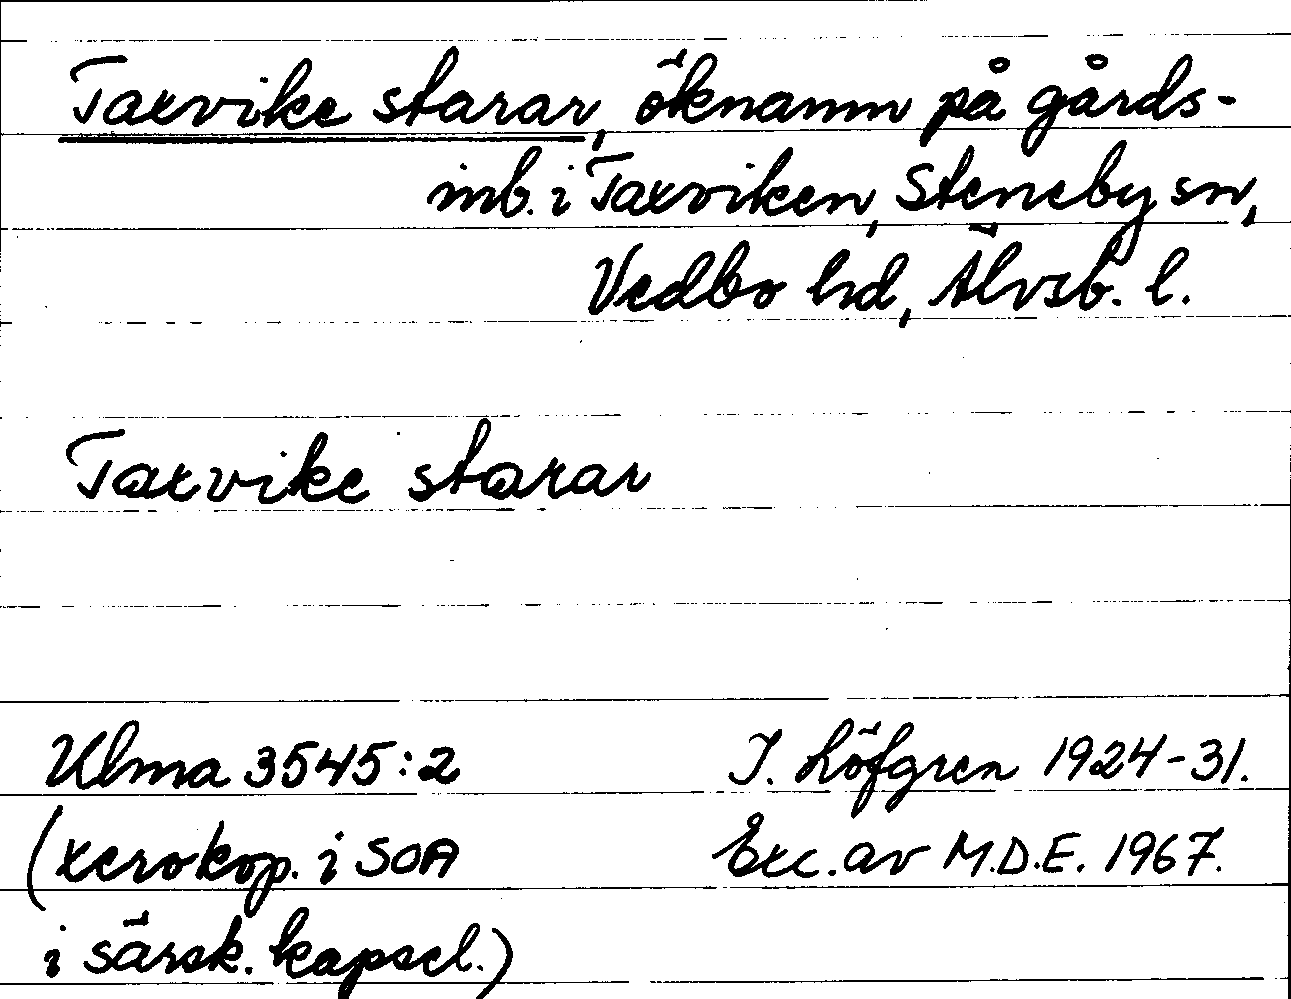 Taxvike starar, öknamn på gårds-
inb. i Taxviken, Steneby sn,
Vedbo hd, Älvsb. l.
Taxvike starar
Ulma 3545:2
I. Löfgren 1924-31.
(xerokop. i SOA
Exc. av M.D.E. 1967.
i särsk. kapsel.)